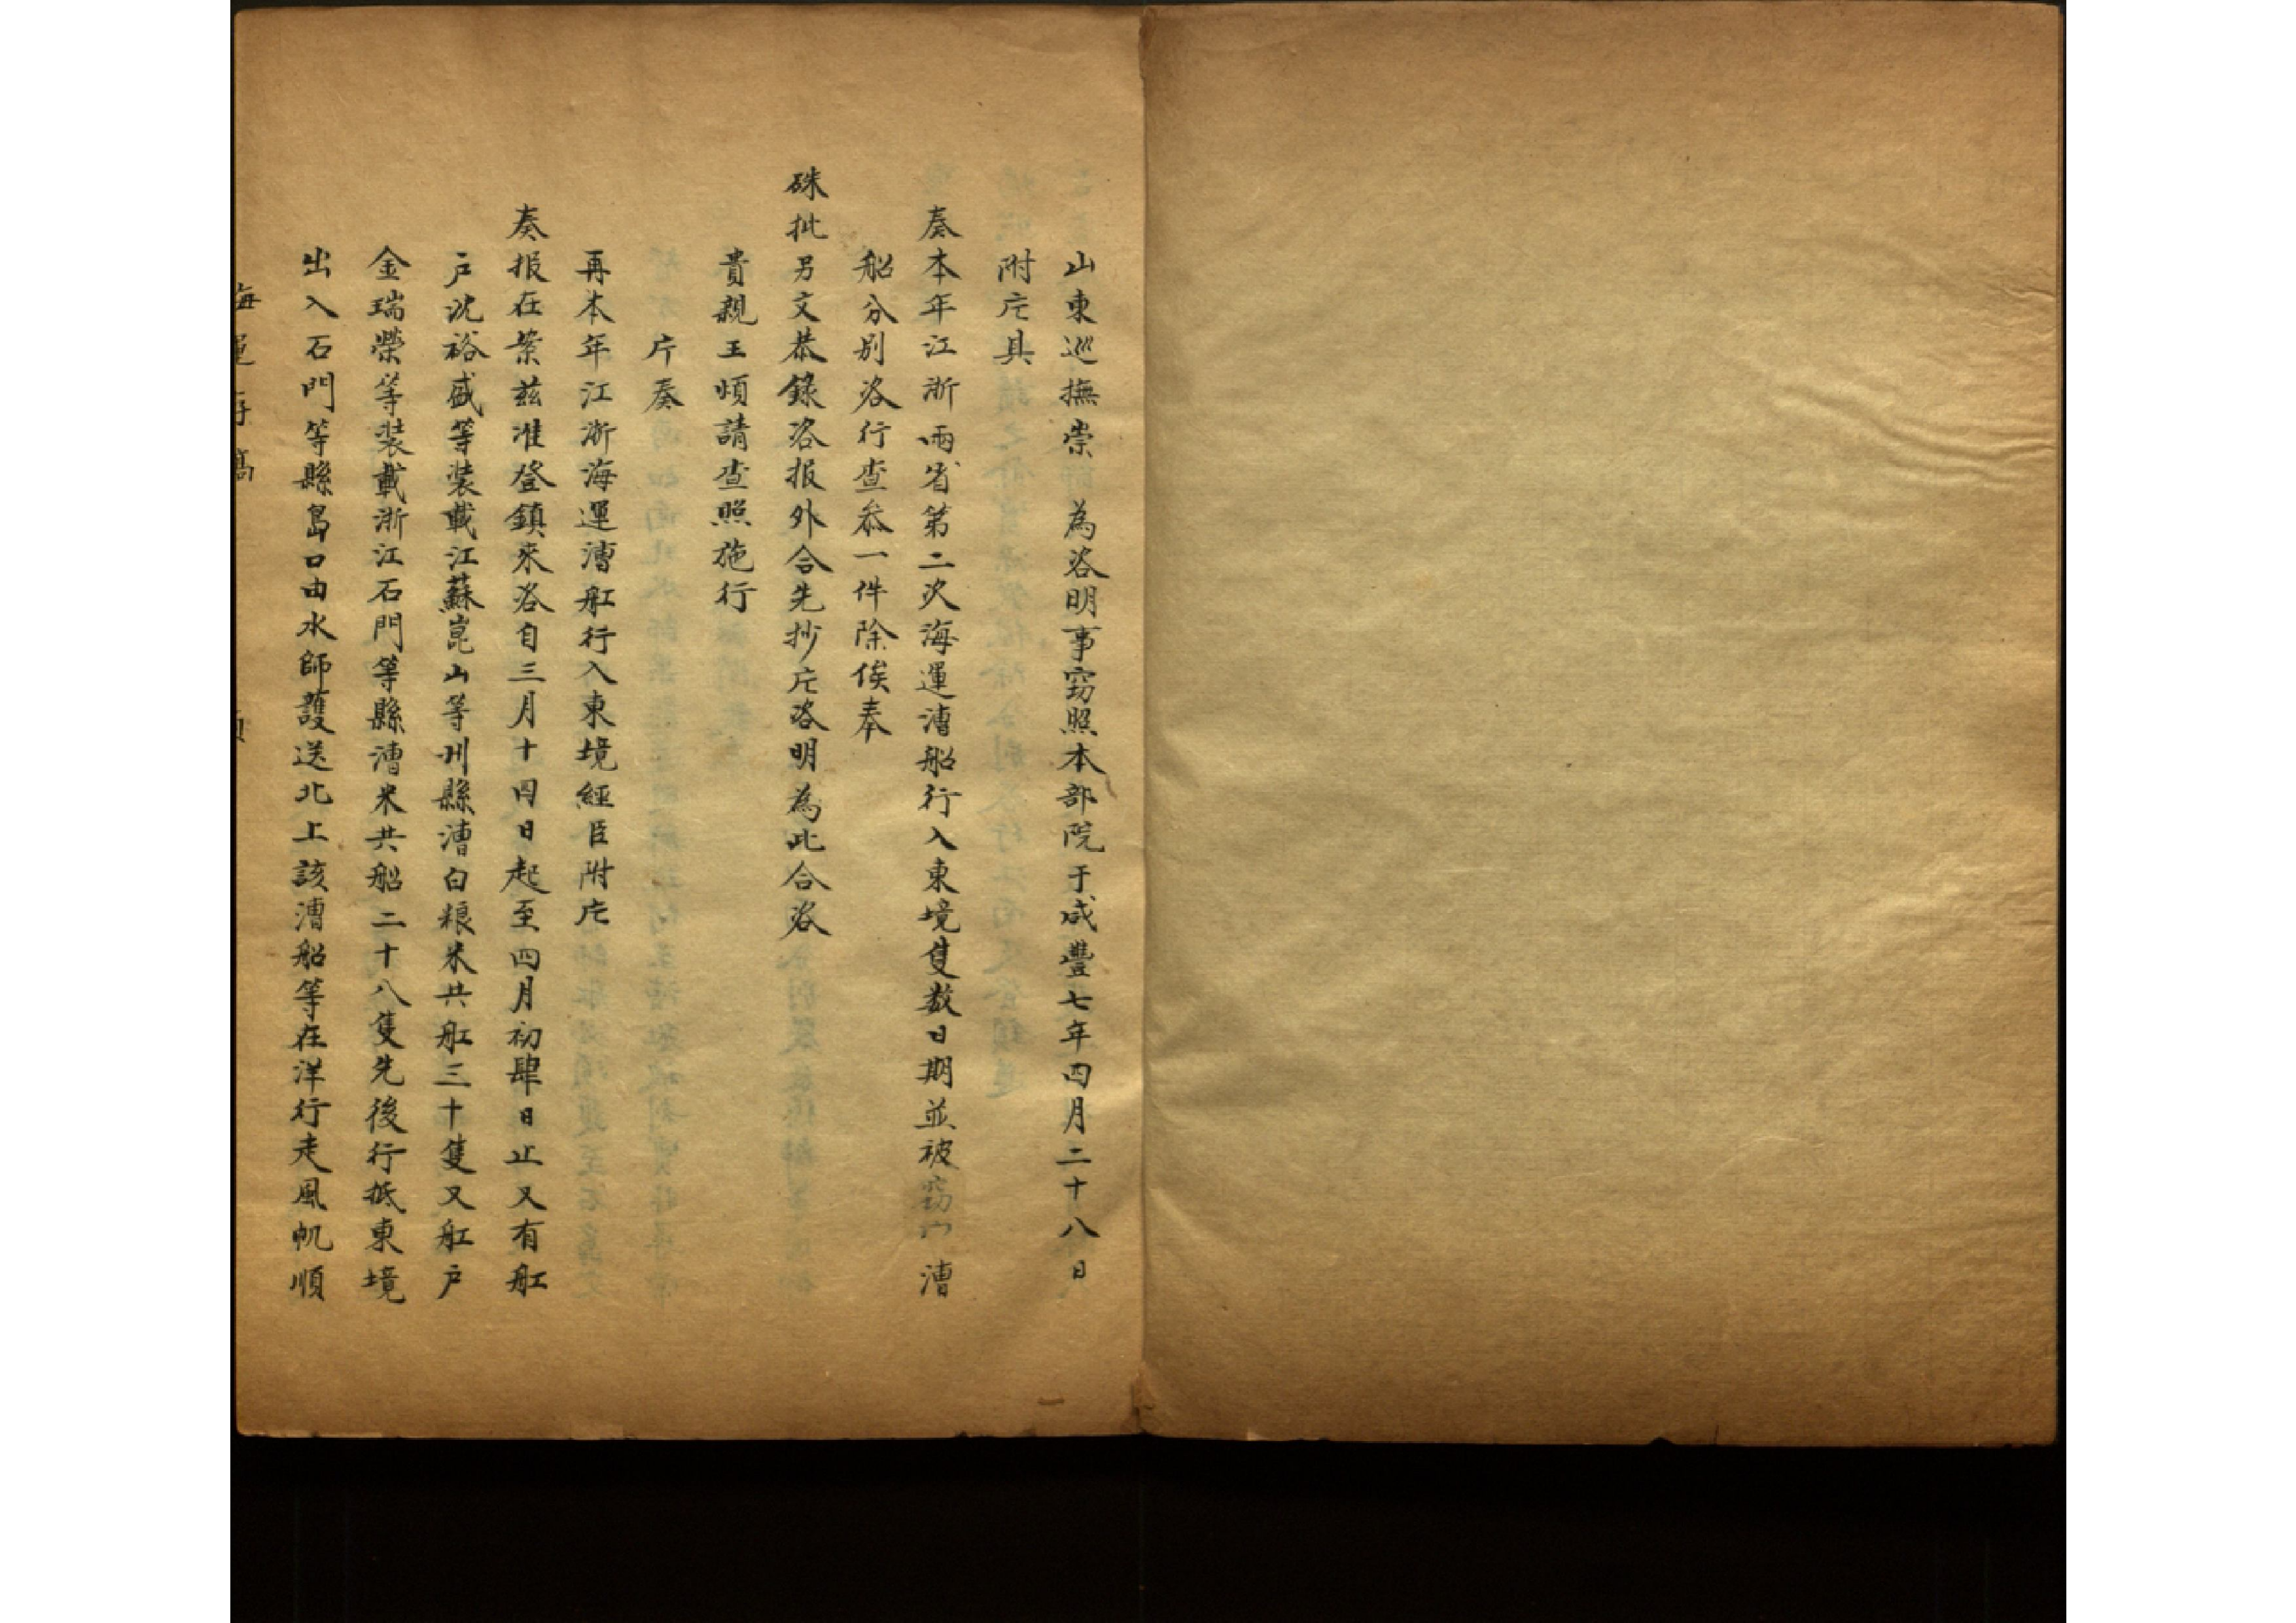 山東巡撫崇　為咨明事竊照本部院于咸豐七年四月二十八日
附片具
奏本年江浙兩省第二次海運漕船行入東境隻数日期並被竊漕
船分别咨行查叅一件除俟奉
硃批另文恭錄咨报外合先抄片咨明為此合咨
貴親王煩請查照施行
片奏
再本年江浙海運漕舡行入東境經臣附片
奏报在案兹准登鎮來咨自三月十四日起至四月初肆日止又有舡
户沈裕盛等装載江蘇崑山等州縣漕白粮米共舡三十隻又舡户
金瑞榮等装載浙江石門等縣漕米共船二十八隻先後行抵東境
出入石門等縣島口由水師護送北上該漕船等在洋行走風帆順
海運存稿